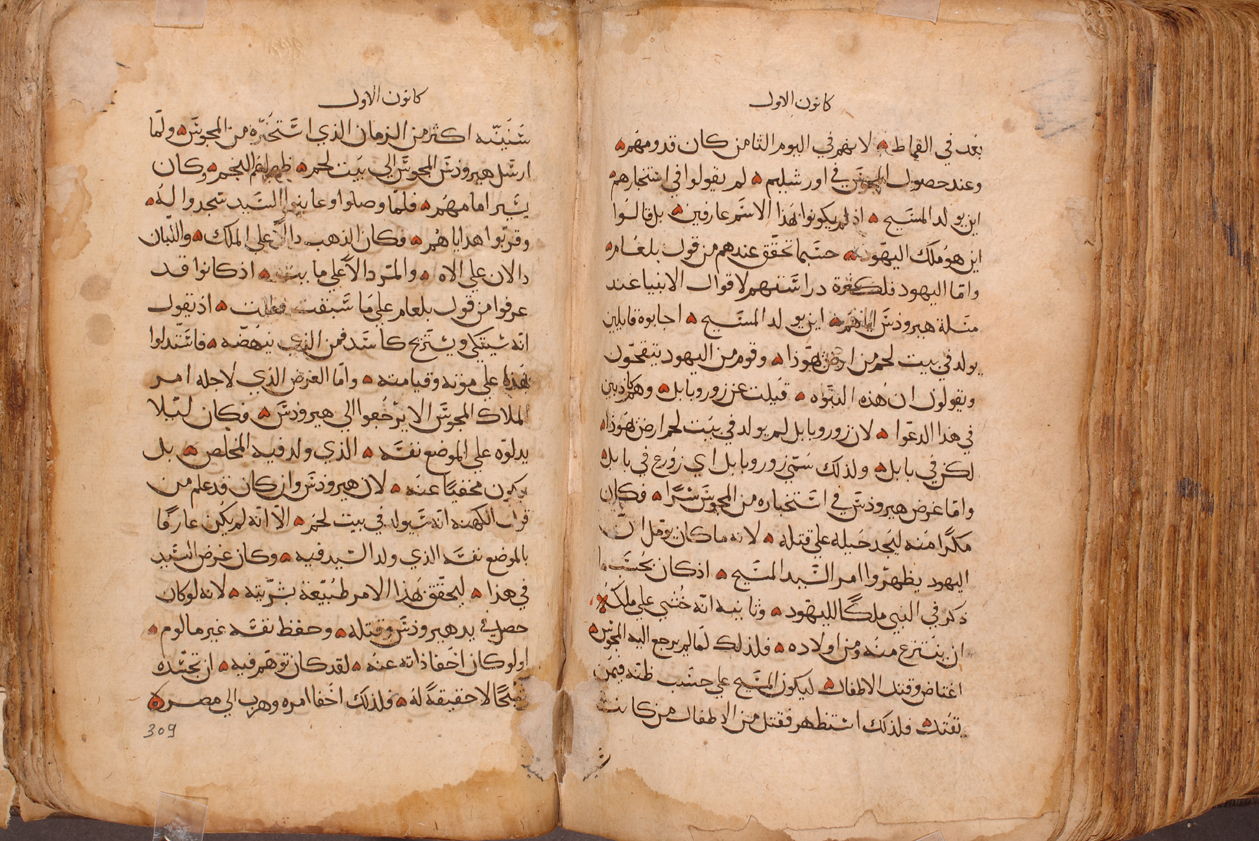 كانون الاول
بعد في القماط لانهم في اليوم الثامن كان قدومهم
وعند حصول المجوس في اورشليم لم يقولوا في استخبارهم
اين يولد المسيح اذ لم يكونوا لهذا الاسم عارفين بل قالوا
اين هو ملك اليهود حسبما تحقق عندهم من قول بلعام
واما اليهود فلكثرة دراستهم لاقوال الانبيا عند
مسلة هيرودس اين يولد المسيح اجابوه قايلين
يولد في بيت لحم من ارض يهوذا وقوم من اليهود يتفحون
ويقولون ان هذه النبوه قيلت عن زوروبابل وهم كاذبين
في هذا الدعوا لان زوروبابل لم يولد في بيت لحم ارض يهوذا
لكن في بابل ولذلك سمي زوروبابل اي زورع في بابل
واما غرض هيرودس في استخباره من المجوس سرا فكان
مكرا منه ليجد حيله على قتله لانه ما كان
اليهود يظهروا امر السيد المسيح اذ كان بحسب ما
ذكر في النبي ملكا لليهود وثانيه انه خشي على ملكه
ان ينتزع منه ومن اولاده فلذلك لما لم يرجع اليه المجوس
اغتاض وقتل الاطفال ليكون المسيح على حسب ظنه فيمن
يقتل فلذلك استظهر فقتل من الاطفال من كانت
كانون الاول
سنينه اكثر من الزمان الذي استخبره من المجوس ولما
ارسل هيرودس المجوس الى بيت لحم ظهر لهم النجم وكان
يسير امامهم فلما وصلوا وعاينوا السيد سجدوا له
وقربوا هداياهم فكان الذهب دالا على الملك واللبان
دالا على الاه والمر دالا على مايت اذ كانوا قد
عرفوا من قول بلعام على ما سبقت اذ يقول
انه سيتكي ويستريح كاسد فمن الذي ينهضه فاستدلوا
بهذا على موته وقيامته واما الغرض الذي لاجله امر
الملاك المجوس الا يرجعوا الى هيرودس فكان ليلا
يدلوه على الموضع نفسه الذي ولد فيه المخلص بل
يكون مخفيا عنه لان هيرودس وان كان قد علم من
قول الكهنه انه سيولد في بيت لحم الا انه لم يكن عارفا
بالموضع نفسه الذي ولد السيد فيه وكان غرض السيد
في هذا ليحقق بهذا الامر طبيعة بشريته لانه لو كان
حصل في يد هيرودس وقتله وحفظ نفسه غير مالوم
او لو كان اخفا ذاته عنه لقد كان توهم فيه ان تجسده
شبحا لا حقيقة له فلذلك اخفا امره وهرب الى مصر
309